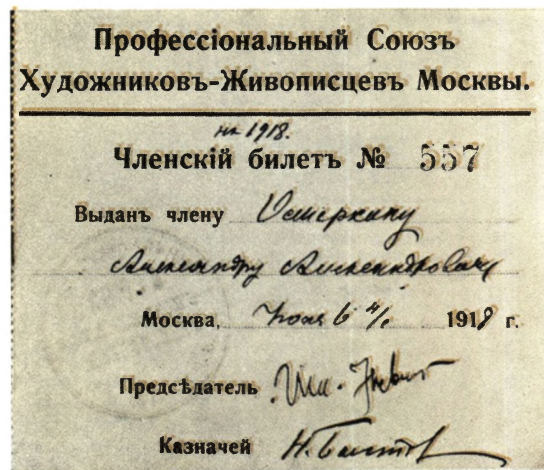 Профессіональный Союзъ
Художниковъ-Живописцевъ Москвы.
на 1918.
Членскій билетъ № 557
Выданъ члену Осмеркину
Александру Александровичу
Москва, 6 1918 г.
Предсѣдатель
Казначей